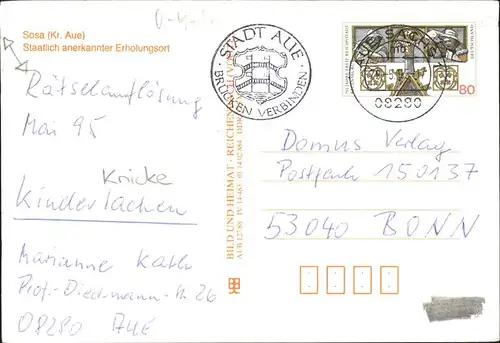 Sosa (Kr. Aue)
Staatlich anerkannter Erholungsort
Rätselauflösung
Mai 95
Kricke
Kinderlachen
Marianne Kath
Prof.-Dieckmann-Str. 26
08280 AUE
STADT AUE
BRÜCKEN VERBINDEN
AUE, SACHS
08280
DEUTSCHLAND
80
BILD UND HEIMAT · REICHENBACH (V
Domus Verlag
Postfach 150137
53040 BONN